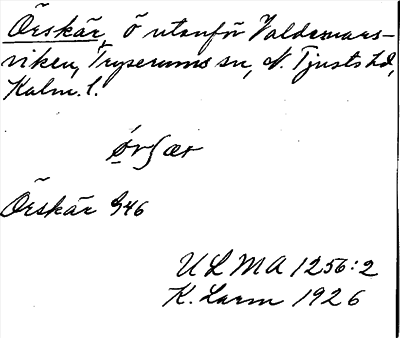 Örskär, ö utanför Valdemars-
viken, Tryserums sn, N. Tjusts hd,
Kalm. l.
ørʃær
Örskär G46
ULMA 1256:2
K. Larm 1926